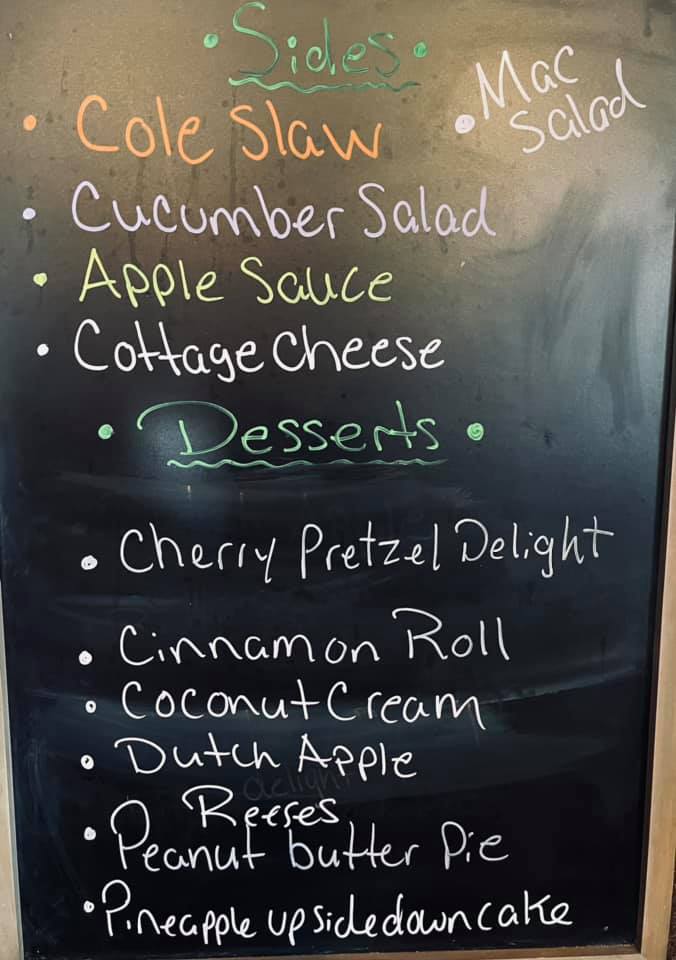 Sides
Mac
Salad
Cole Slaw
Cucumber Salad
Apple Sauce
Cottage Cheese
Desserts
Cherry Pretzel Delight
Cinnamon Roll
Coconut Cream
Dutch Apple
delight
Reeses
Peanut butter Pie
Pineapple upsidedown cake